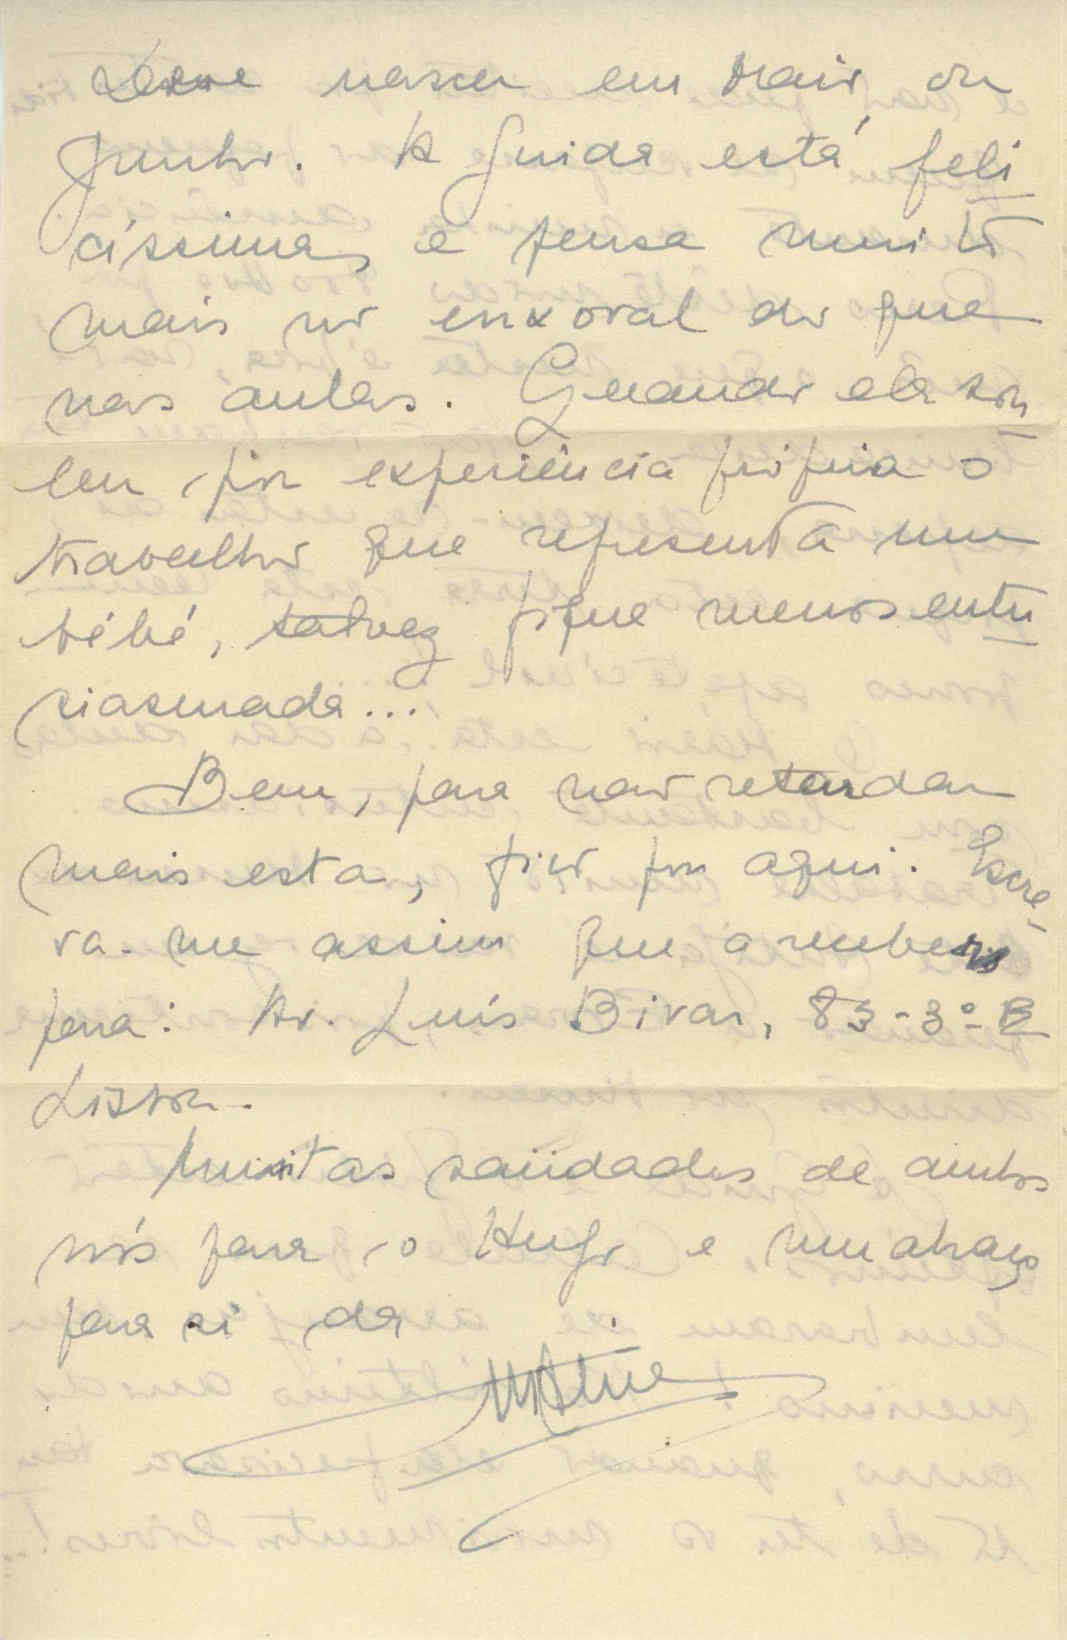 Deve nascer em Maio ou
Junho. A Guida está feli
císsima, e pensa muito
mais no enxoval do que
nas aulas. Quando ela sou
ber, por experiência própria o
trabalho que representa um
bébé, talvez fique menos entu
siasmada...
Bem, para não retardar
mais esta, fico por aqui. Escre-
va-me assim que a receber
para: Av. Luís Bivar, 83-3º-B
Lisboa.
Muitas saüdades de ambos
nós para o Hugo e um abraço
para si da